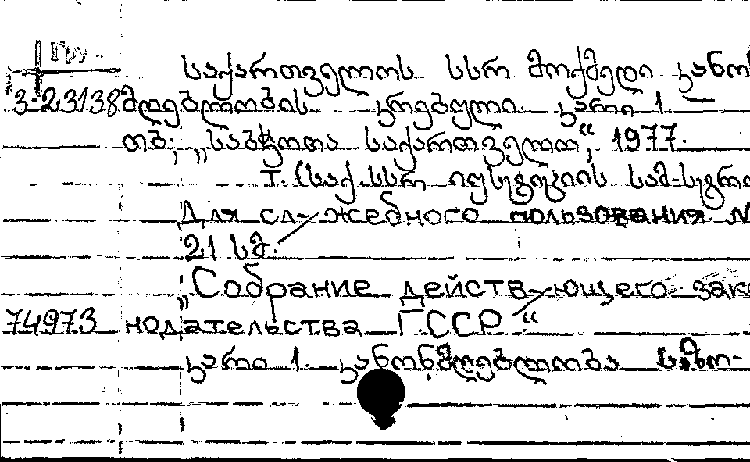 საქართველოს სსრ მოქმედი კანონ
3-23138 მდებლობის კრებული. კარი 1. —
თბ., „საბჭოთა საქართველო“, 1977.
т. (საქ. სსრ იუსტიციის სამ-სტრო
Для служебного пользования N
21 სმ.
„Собрание действующего зако
74973 нодательства ГССР“
კარი 1. კანონმდებლობა საზო-